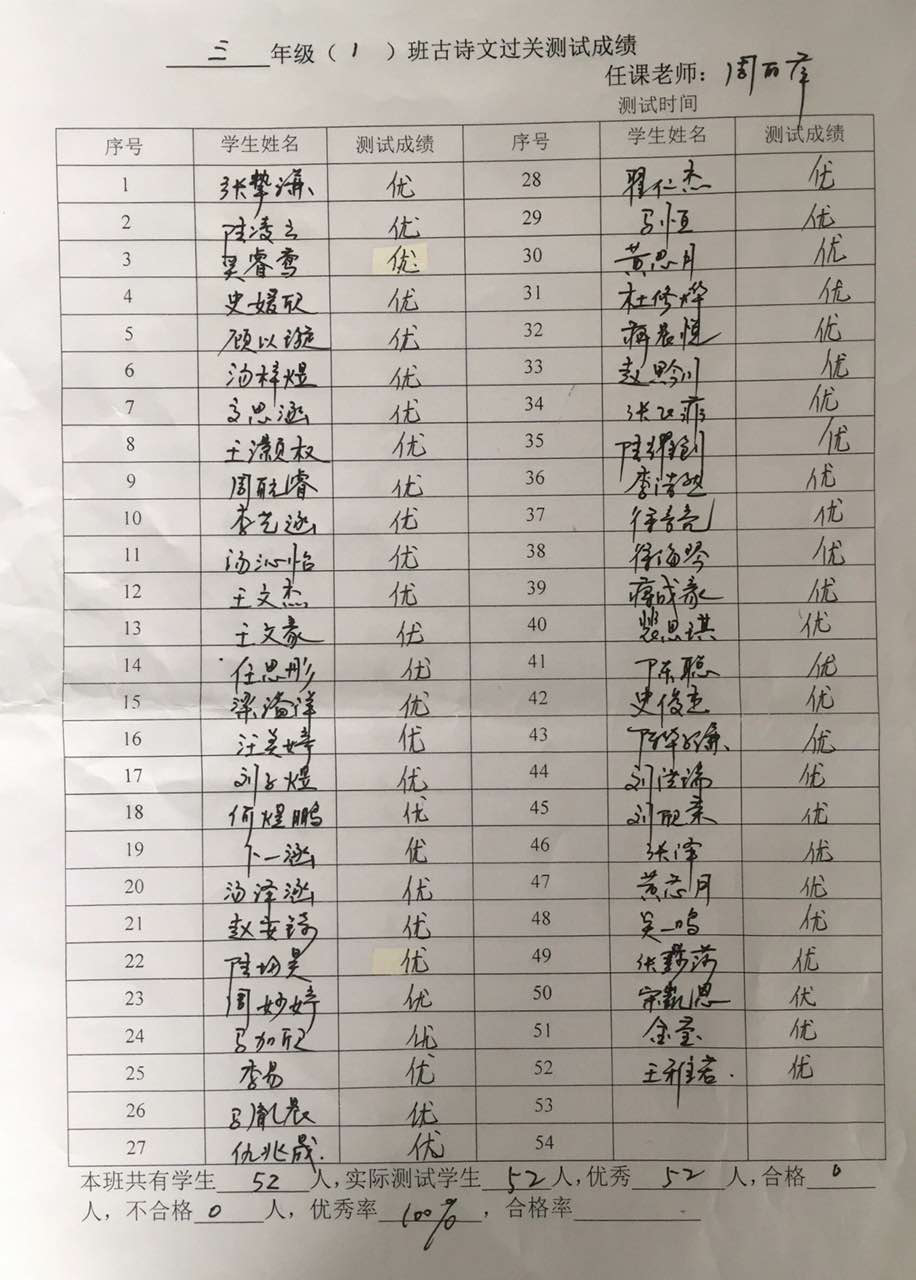 三 年级（ 1 ）班古诗文过关测试成绩
任课老师：周
测试时间
序号 学生姓名 测试成绩 序号 学生姓名 测试成绩
1 张挚谦 优 28 翟仁杰 优
2 陆凌云 优 29 马恒 优
3 吴睿鸾 优 30 黄思月 优
4 史媛欣 优 31 杜修烨 优
5 顾以璇 优 32 蒋晨悦 优
6 汤梓煜 优 33 赵黔川 优
7 高思涵 优 34 张 优
8 王灏权 优 35 陆 优
9 周 睿 优 36 李浩然 优
10 李艺涵 优 37 徐 亮 优
11 汤沁怡 优 38 徐海 优
12 王文杰 优 39 蒋成豪 优
13 王文豪 优 40 裴思琪 优
14 任思彤 优 41 陈聪 优
15 梁 洋 优 42 史俊杰 优
16 汪美婷 优 43 陈 优
17 刘子煜 优 44 刘 优
18 何煜鹏 优 45 刘 优
19 卞一涵 优 46 张泽 优
20 汤泽涵 优 47 黄芯月 优
21 赵安琦 优 48 吴一鸣 优
22 陆 昊 优 49 张 莎 优
23 周妙婷 优 50 宗凯恩 优
24 马加欣 优 51 金 优
25 李易 优 52 王雅君. 优
26 马胤晨 优 53
27 仇兆晟. 优 54
本班共有学生 52 人，实际测试学生 52 人，优秀 52 人，合格 0
人，不合格 0 人，优秀率 100% ，合格率